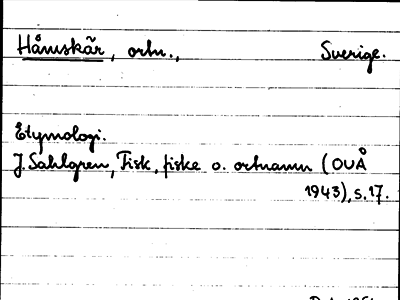 Håmskär, ortn., Sverige.
Etymologi.
J. Sahlgren, Fisk, fiske o. ortnamn (OUÅ
1943), s. 17.